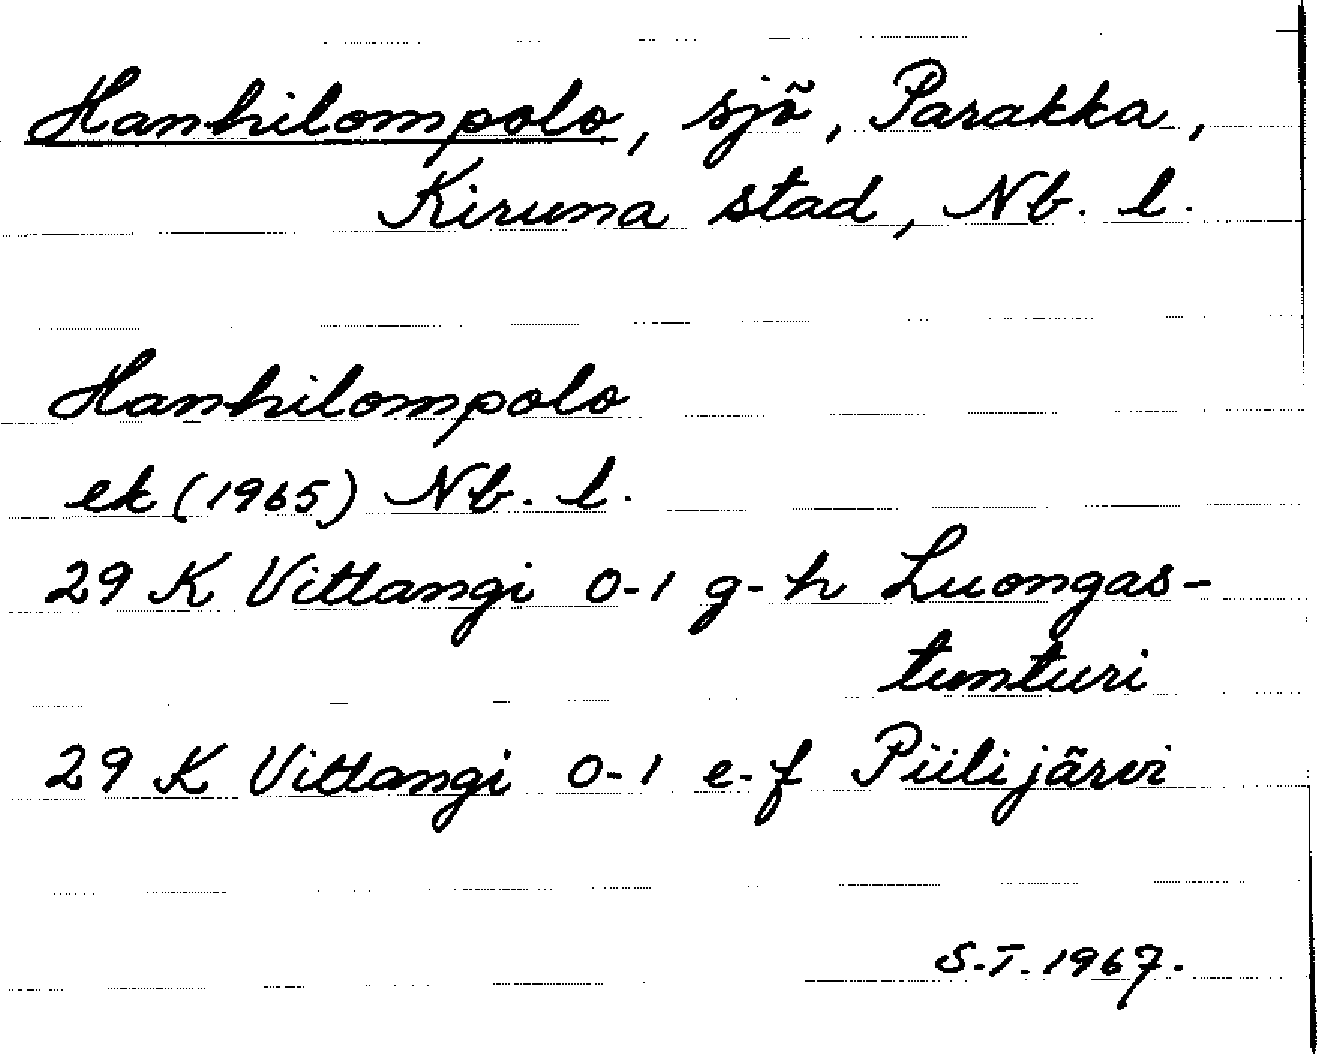 Hanhilompolo, sjö, Parakka,
Kiruna stad, Nb. l.
Hanhilompolo
ek (1965) Nb. l.
29 K Vittangi 0-1 g-h Luongas-
tunturi
29 K Vittangi 0-1 e-f Piilijärvi
S.T. 1967.